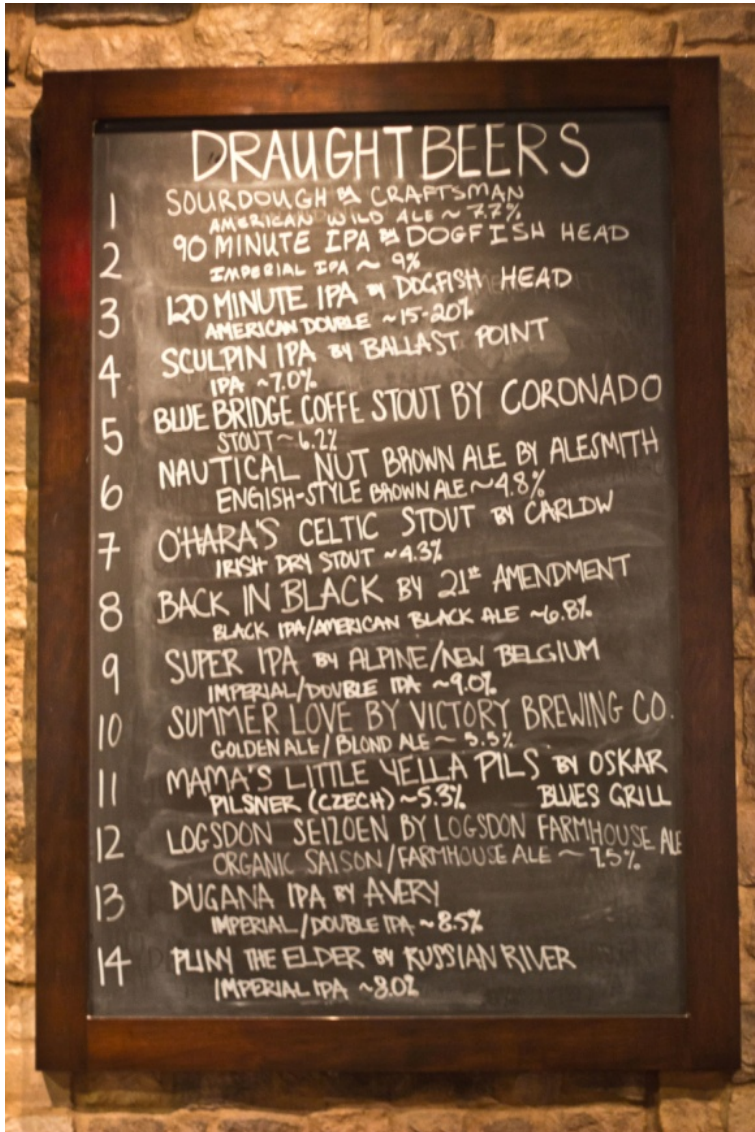 DRAUGHT BEERS
1 SOURDOUGH BY CRAFTSMAN
AMERICAN WILD ALE ~ 7.7%
2 90 MINUTE IPA BY DOGFISH HEAD
IMPERIAL IPA ~ 9%
3 120 MINUTE IPA BY DOGFISH HEAD
AMERICAN DOUBLE ~15-20%
4 SCULPIN IPA BY BALLAST POINT
IPA ~7.0%
5 BLUE BRIDGE COFFE STOUT BY CORONADO
STOUT ~ 6.2%
6 NAUTICAL NUT BROWN ALE BY ALESMITH
ENGISH-STYLE BROWN ALE ~4.8%
7 O'HARA'S CELTIC STOUT BY CARLOW
IRISH DRY STOUT ~4.3%
8 BACK IN BLACK BY 21st AMENDMENT
BLACK IPA/AMERICAN BLACK ALE ~6.8%
9 SUPER IPA BY ALPINE/NEW BELGIUM
IMPERIAL/DOUBLE IPA ~9.0%
10 SUMMER LOVE BY VICTORY BREWING CO.
GOLDEN ALE / BLOND ALE ~ 5.5%
11 MAMA'S LITTLE YELLA PILS BY OSKAR
PILSNER (CZECH) ~5.3% BLUES GRILL
12 LOGSDON SEIZOEN BY LOGSDON FARMHOUSE ALE
ORGANIC SAISON/FARMHOUSE ALE ~ 7.5%
13 DUGANA IPA BY AVERY
IMPERIAL/DOUBLE IPA ~8.5%
14 PLINY THE ELDER BY RUSSIAN RIVER
IMPERIAL IPA ~8.0%